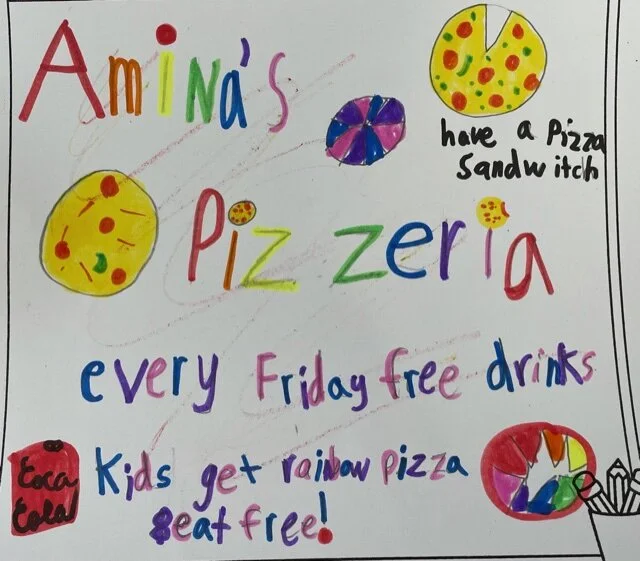 Amina's
have a Pizza
Sandwitch
Pizzeria
every Friday free drinks
Kids get rainbow pizza
& eat free!
Coca
Cola